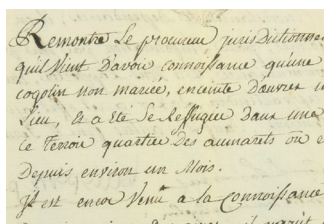 Remontre Le procureur jurisdictionnel
quil vient d'avoir connoissance qu'une
cogolin non mariée, enceinte d'œuvres
Lieu, & a Eté Se Reffugiée dans une
ce Terroir quartier Des aumarets ou
Depuis environ un Mois.
Il est encor Venu a la Connoissance